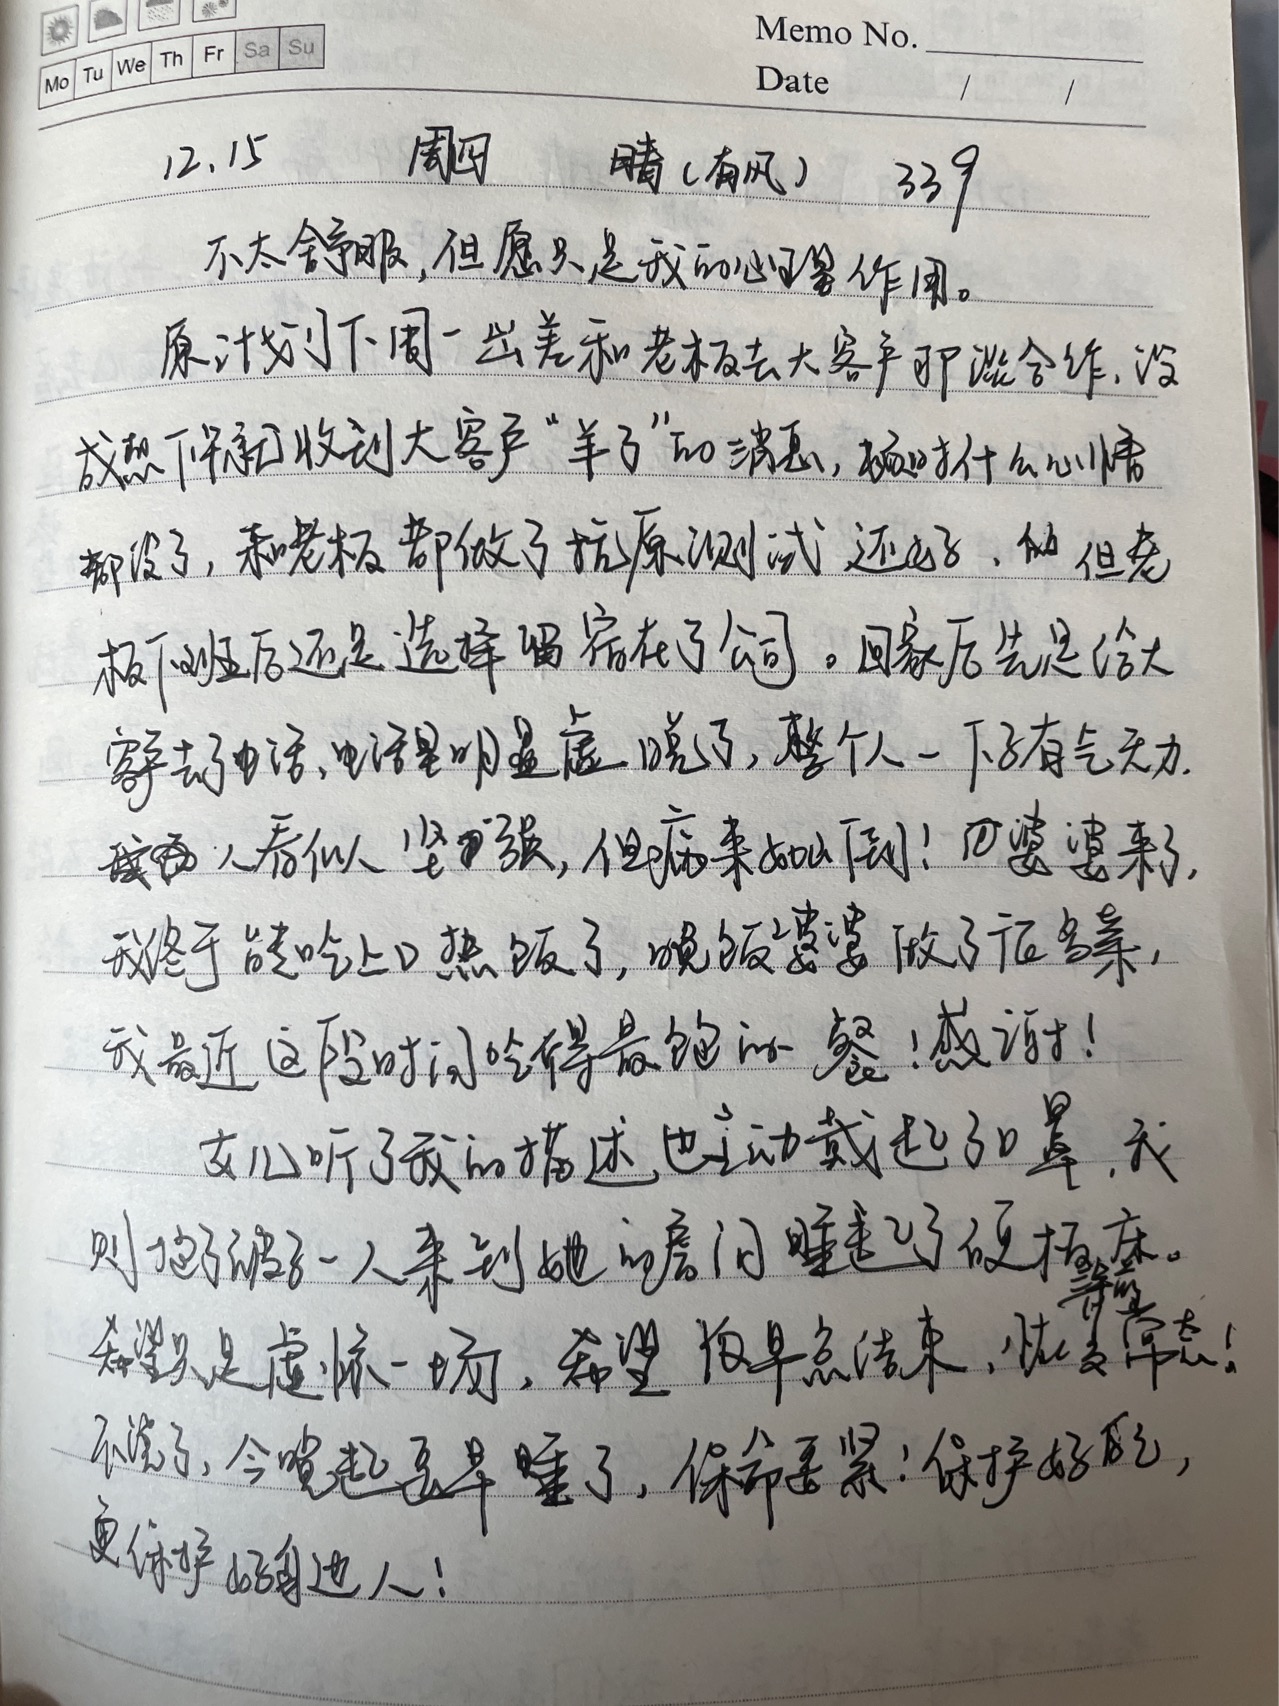 Mo Tu We Th Fr Sa Su
Memo No.
Date / /
12.15 周四 晴(有风) 339
不太舒服,但愿只是我的心理作用。
原计划下周一出差和老板去大客户那谈合作,没
成想下午就收到大客户“羊了”的消息,顿时什么心情
都没了,和老板都做了抗原测试还好、但老
板下班后还是选择留宿在了公司。回家后先是给大
客户去了电话,电话里明显虚脱了,整个人一下子有气无力.
人看似人坚强,但病来如山倒!婆婆来了,
我终于能吃上口热饭了,晚饭婆婆做了两菜,
我最近这段时间吃得最饱的一餐!感谢!
女儿听了我的描述也主动戴起了口罩,我
则抱了被子一人来到她的房间睡起了硬板床。
希望只是虚惊一场,希望早点结束,恢复常态!
不说了,今晚起要早睡了,保命要紧!保护好自己,
更保护好身边人!